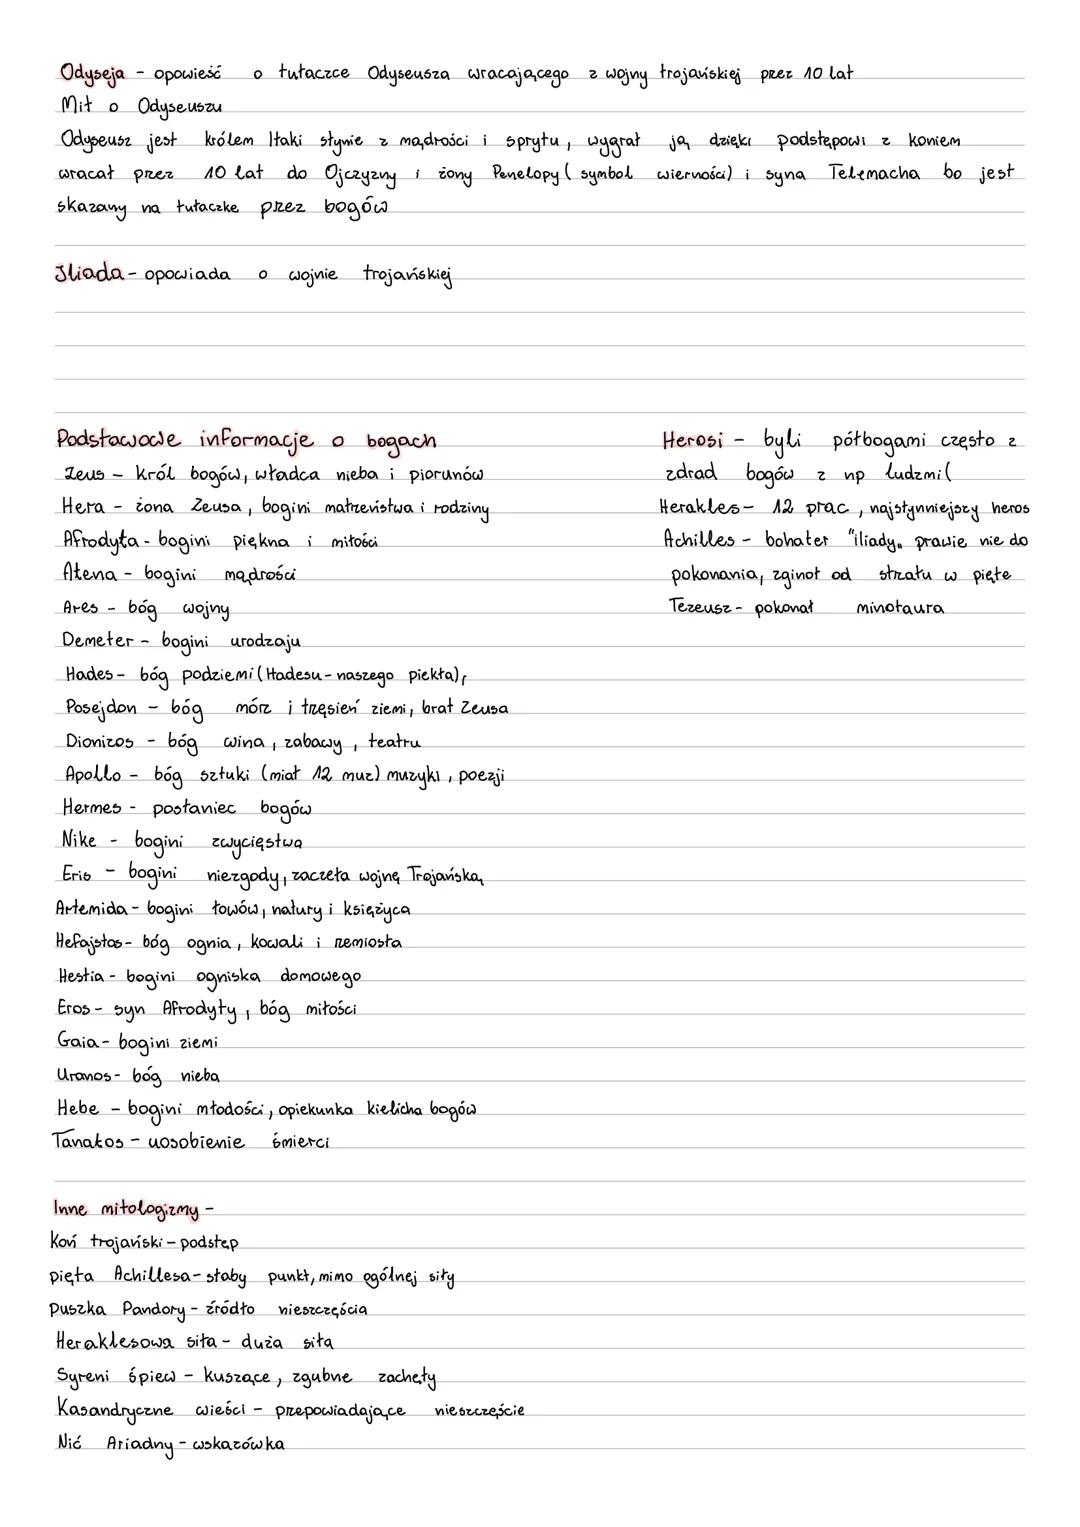 Odyseja - opowieść o tułaczce Odyseusza wracającego z wojny trojańskiej przez 10 lat
Mit o Odyseuszu
Odyseusz jest królem Itaki słynie z mądrości i sprytu, wygrał ją dzięki podstępowi z koniem
wracał przez 10 lat do Ojczyzny i żony Penelopy ( symbol wierności) i syna Telemacha bo jest
skazany na tułaczkę przez bogów
Iliada - opowiada o wojnie trojańskiej
Podstawowe informacje o bogach
Zeus - król bogów, władca nieba i piorunów
Hera - żona Zeusa, bogini małżeństwa i rodziny
Afrodyta - bogini piękna i miłości
Atena - bogini mądrości
Ares - bóg wojny
Demeter - bogini urodzaju
Hades - bóg podziemi (Hadesu - naszego piekła),
Posejdon - bóg mórz i trzęsień ziemi, brat Zeusa
Dionizos - bóg wina, zabawy, teatru
Apollo - bóg sztuki (miał 12 muz) muzyki, poezji
Hermes - posłaniec bogów
Nike - bogini zwycięstwa
Eris - bogini niezgody, zaczęła wojnę Trojańską
Artemida - bogini łowów, natury i księżyca
Hefajstos - bóg ognia, kowali i rzemiosła
Hestia - bogini ogniska domowego
Eros - syn Afrodyty, bóg miłości
Gaia - bogini ziemi
Uranos - bóg nieba
Hebe - bogini młodości, opiekunka kielicha bogów
Tanatos - uosobienie śmierci
Herosi - byli półbogami często z
zdrad bogów z np ludzmi(
Herakles - 12 prac, najsłynniejszy heros
Achilles - bohater "iliady„ prawie nie do
pokonania, zginął od strzału w piętę
Tezeusz - pokonał minotaura
Inne mitologizmy -
Koń trojański - podstęp
pięta Achillesa - słaby punkt, mimo ogólnej siły
puszka Pandory - źródło nieszczęścia
Heraklesowa siła - duża siła
Syreni śpiew - kuszące, zgubne zachęty
Kasandryczne wieści - przepowiadające nieszczęście
Nić Ariadny - wskazówka